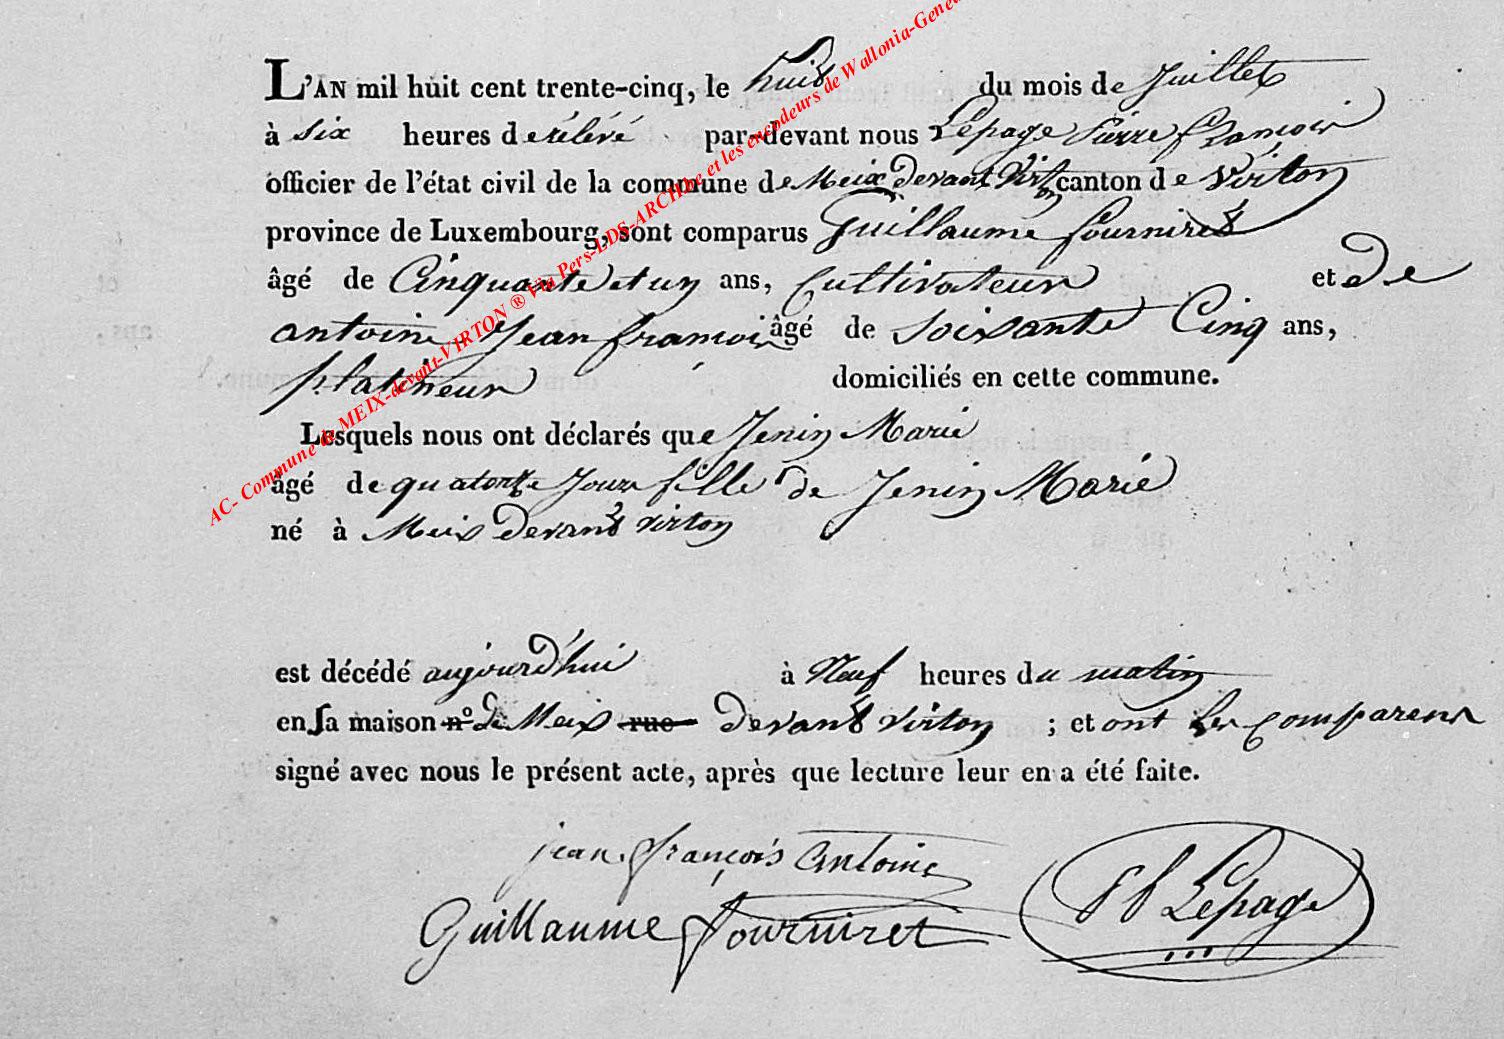 L'AN mil huit cent trente-cinq, le huit du mois de Juillet
à six heures de relévé par-devant nous Lepage Pierre françois
officier de l'état civil de la commune de Meix devant Virton canton de Virton
province de Luxembourg, sont comparus Guillaume fourniret
âgé de Cinquante et un ans, Cultivateur et de
antoine Jean françois âgé de soixante Cinq ans,
platineur domiciliés en cette commune.
Lesquels nous ont déclarés que Jenin Marie
âgé de quatorze Jours fille de Jenin Marie
né à Meix devant virton
est décédé aujourd'hui à Neuf heures du matin
en sa maison n° de Meix rue devant virton ; et ont les comparens
signé avec nous le présent acte, après que lecture leur en a été faite.
jean françois antoine
Guillaume fourniret
Pf Lepage
AC- Commune de MEIX-devant-VIRTON ® Via Pers-LDS-ARCHbe et les encodeurs de Wallonia-Genea